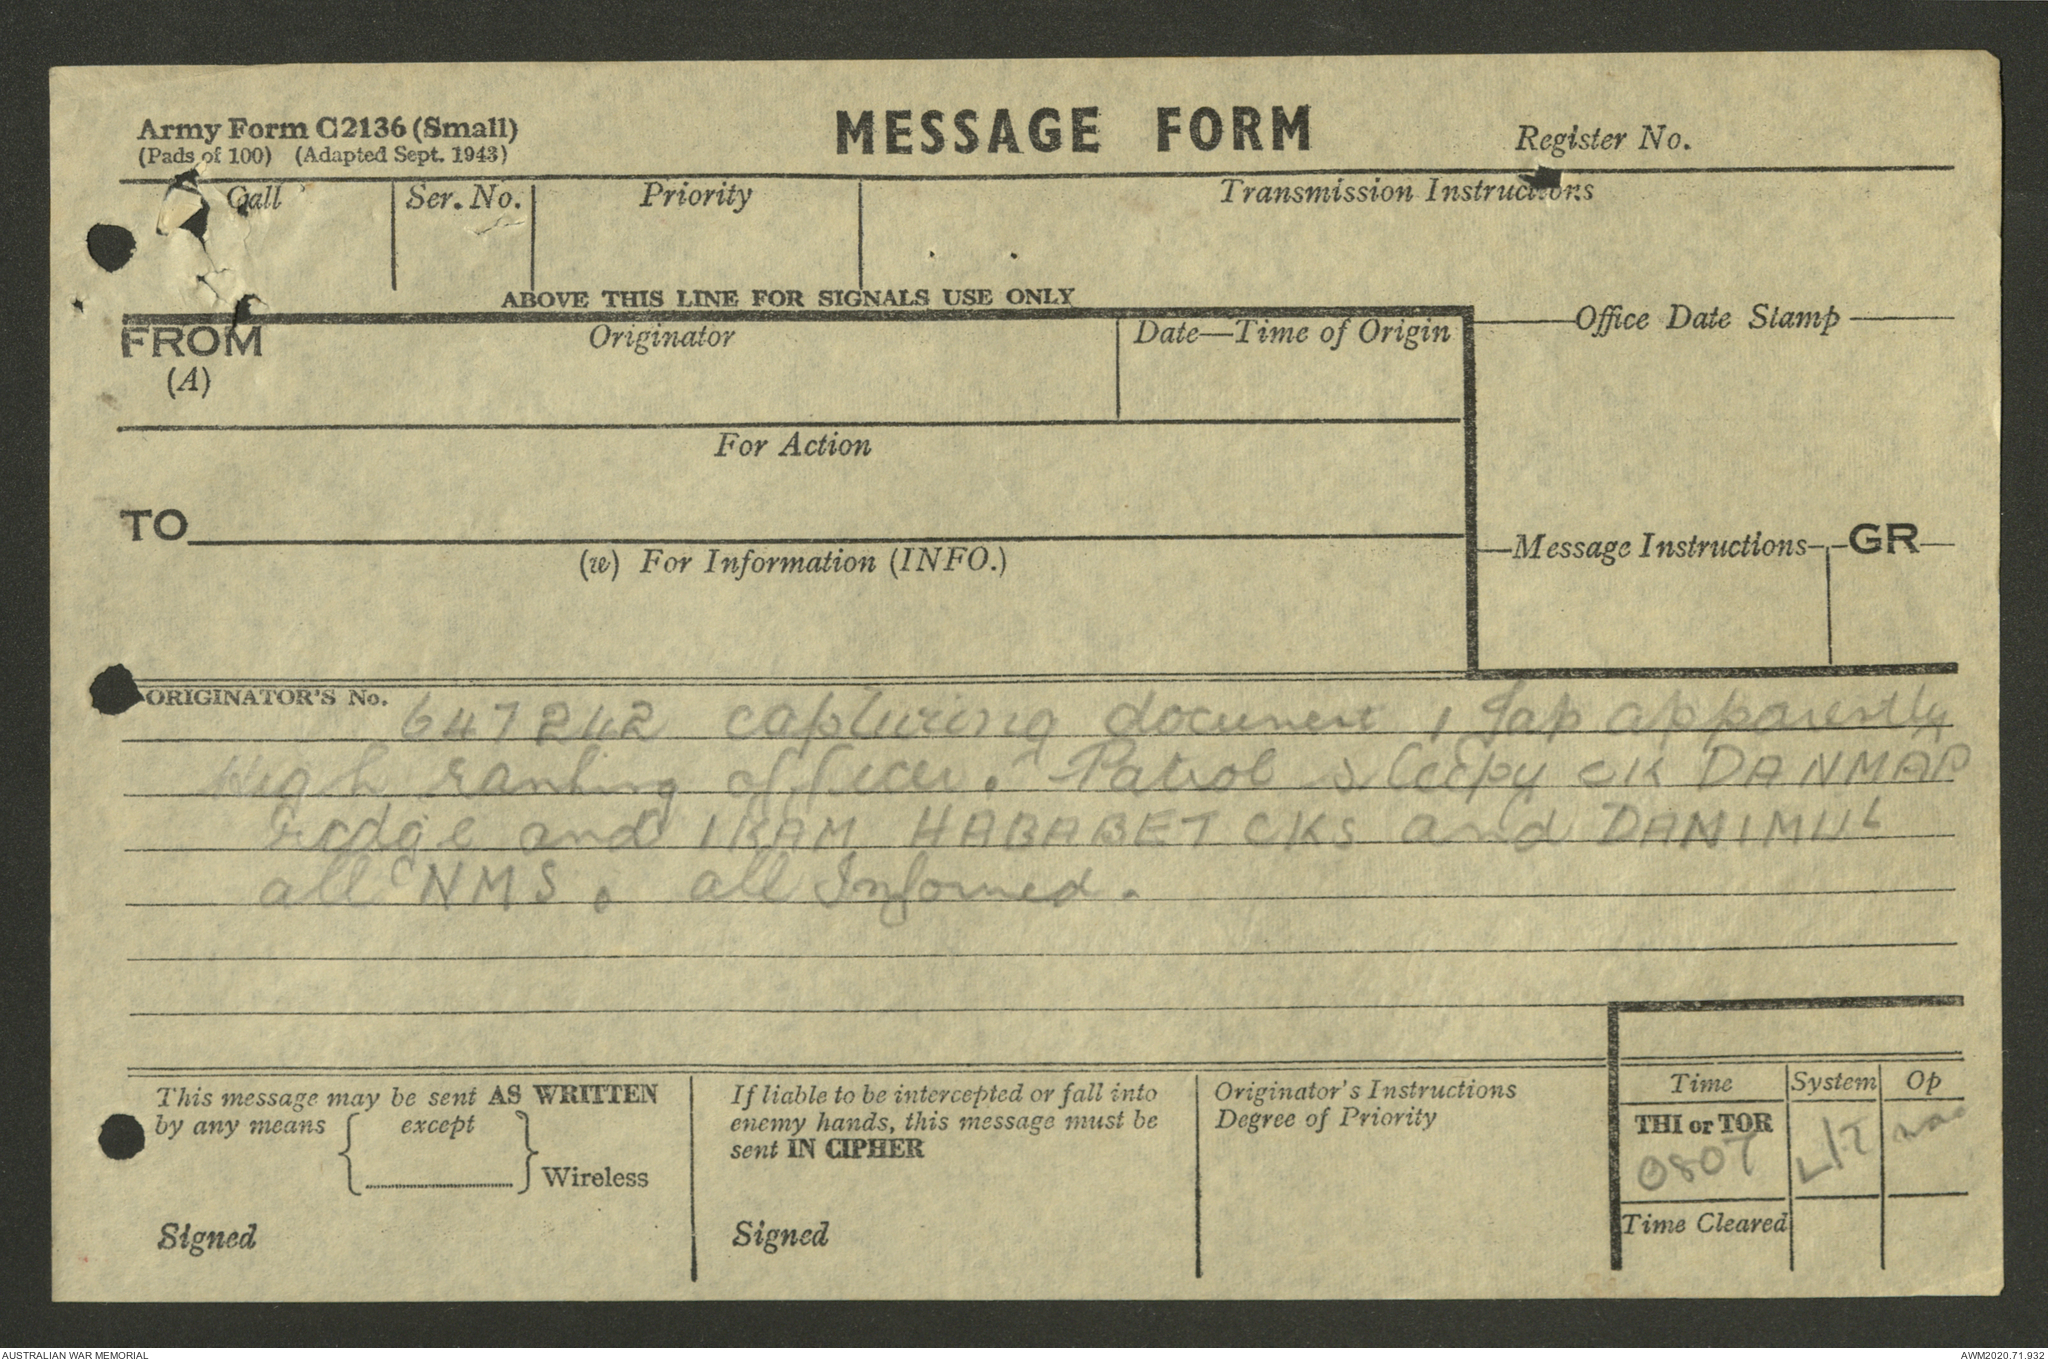 Army Form C2136 (Small)
(Pads of 100) (Adapted Sept. 1943)
MESSAGE FORM
Register No.
Call
Ser. No.
Priority
Transmission Instructions
ABOVE THIS LINE FOR SIGNALS USE ONLY
FROM
(A)
Originator
Date—Time of Origin
Office Date Stamp
For Action
TO
(w) For Information (INFO.)
Message Instructions
GR
ORIGINATOR'S No.
647242 capturing document 1 Jap apparently
High ranking officer. Patrol sleepy CK DANMAP
Ridge and IKAM HABABET CKS and DANIMUL
all NMS. all Informed.
This message may be sent AS WRITTEN
by any means except
Wireless
Signed
If liable to be intercepted or fall into
enemy hands, this message must be
sent IN CIPHER
Signed
Originator's Instructions
Degree of Priority
Time System Op
THI or TOR
0807 L/T
Time Cleared
AUSTRALIAN WAR MEMORIAL
AWM2020.71.932